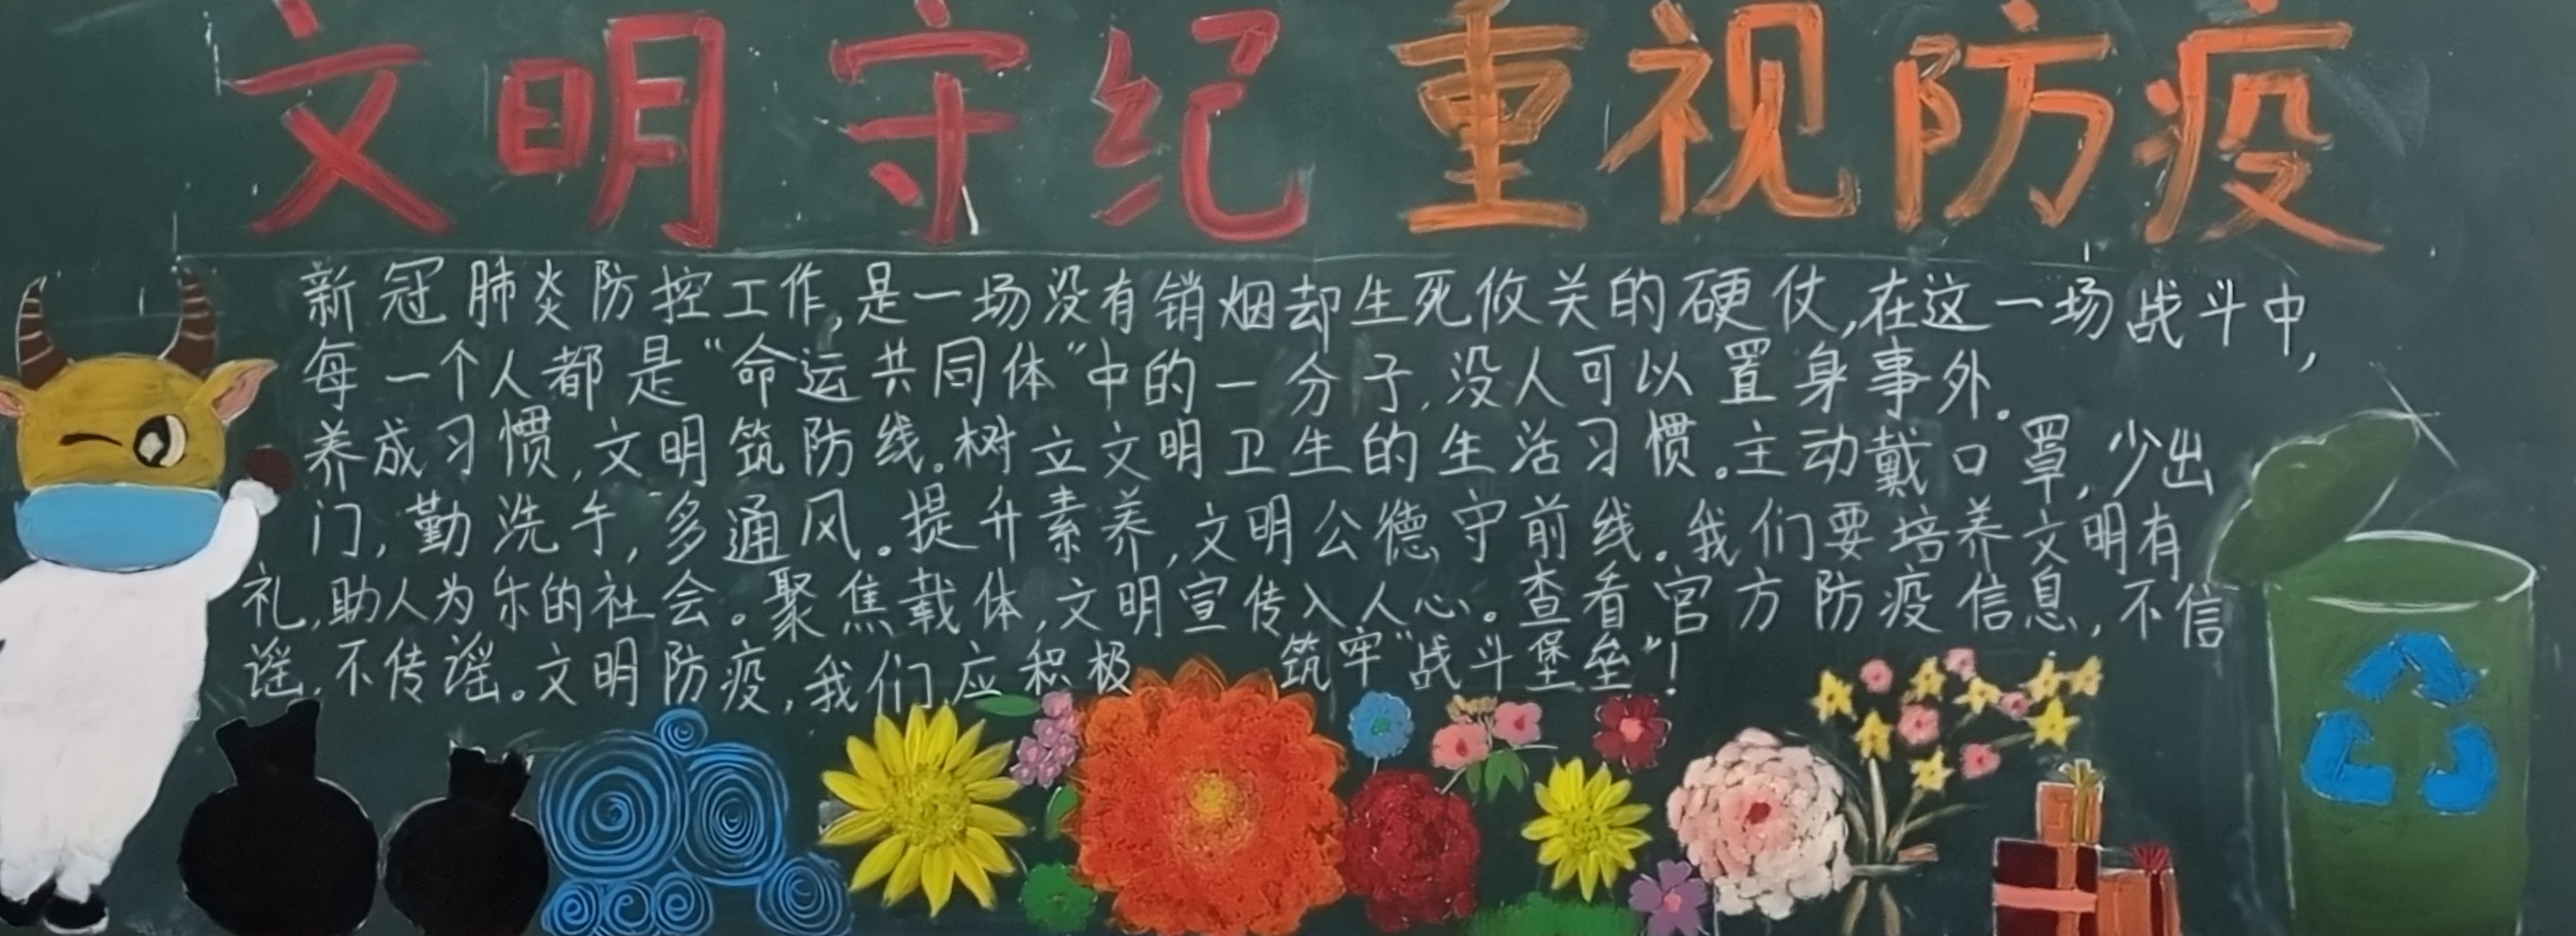 文明守纪 重视防疫
新冠肺炎防控工作,是一场没有销烟却生死攸关的硬仗,在这一场战斗中,
每一个人都是“命运共同体”中的一分子,没人可以置身事外。
养成习惯,文明筑防线。树立文明卫生的生活习惯。主动戴口罩,少出
门,勤洗手,多通风。提升素养,文明公德守前线。我们要培养文明有
礼,助人为乐的社会。聚焦载体,文明宣传入人心。查看官方防疫信息,不信
谣,不传谣。文明防疫,我们应积极 筑牢“战斗堡垒”!